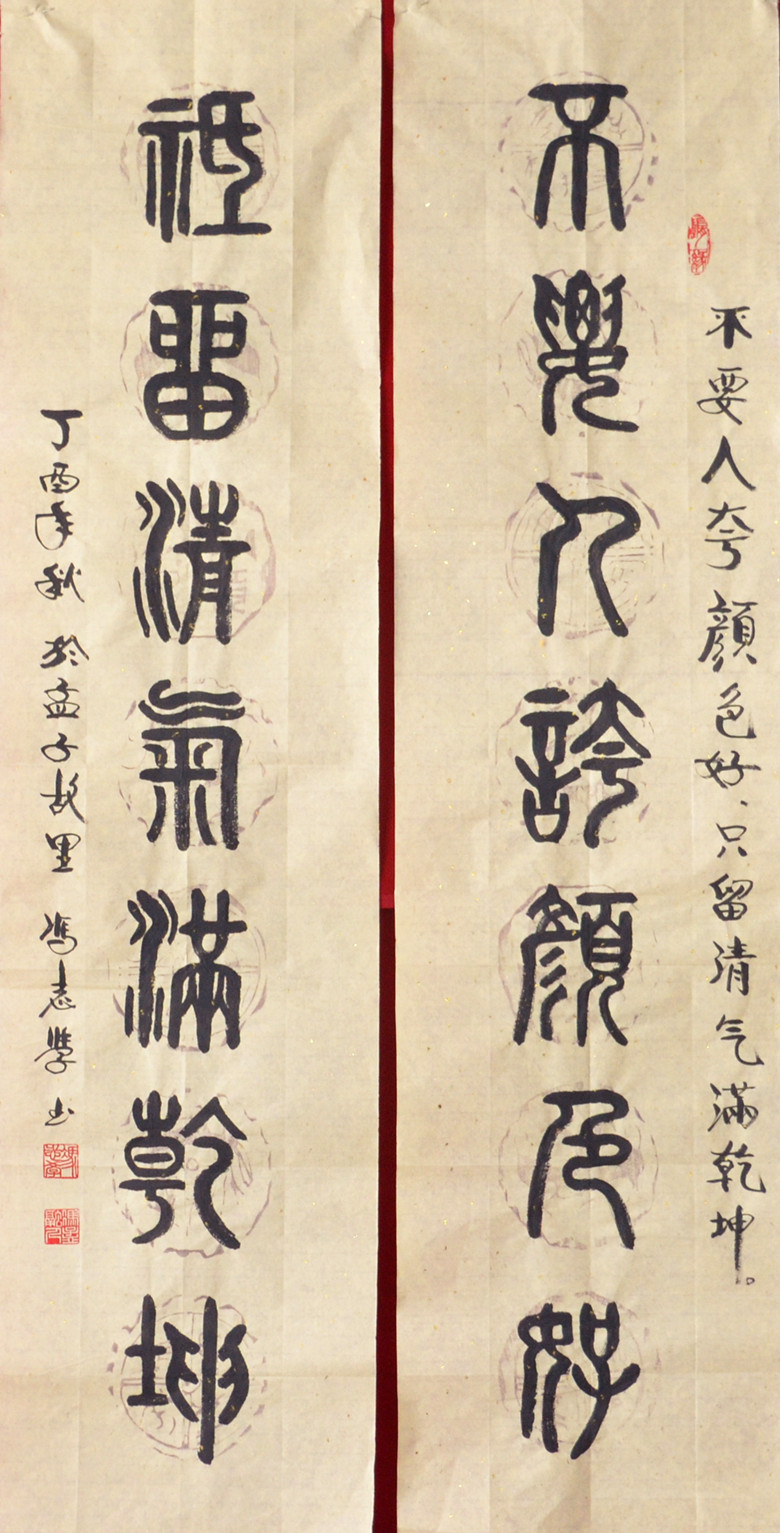 不要人夸顔色好、只留清气滿乾坤。
不要人誇顔色好
祗留清氣滿乾坤
丁酉年秋於孟子故里 馮志學书